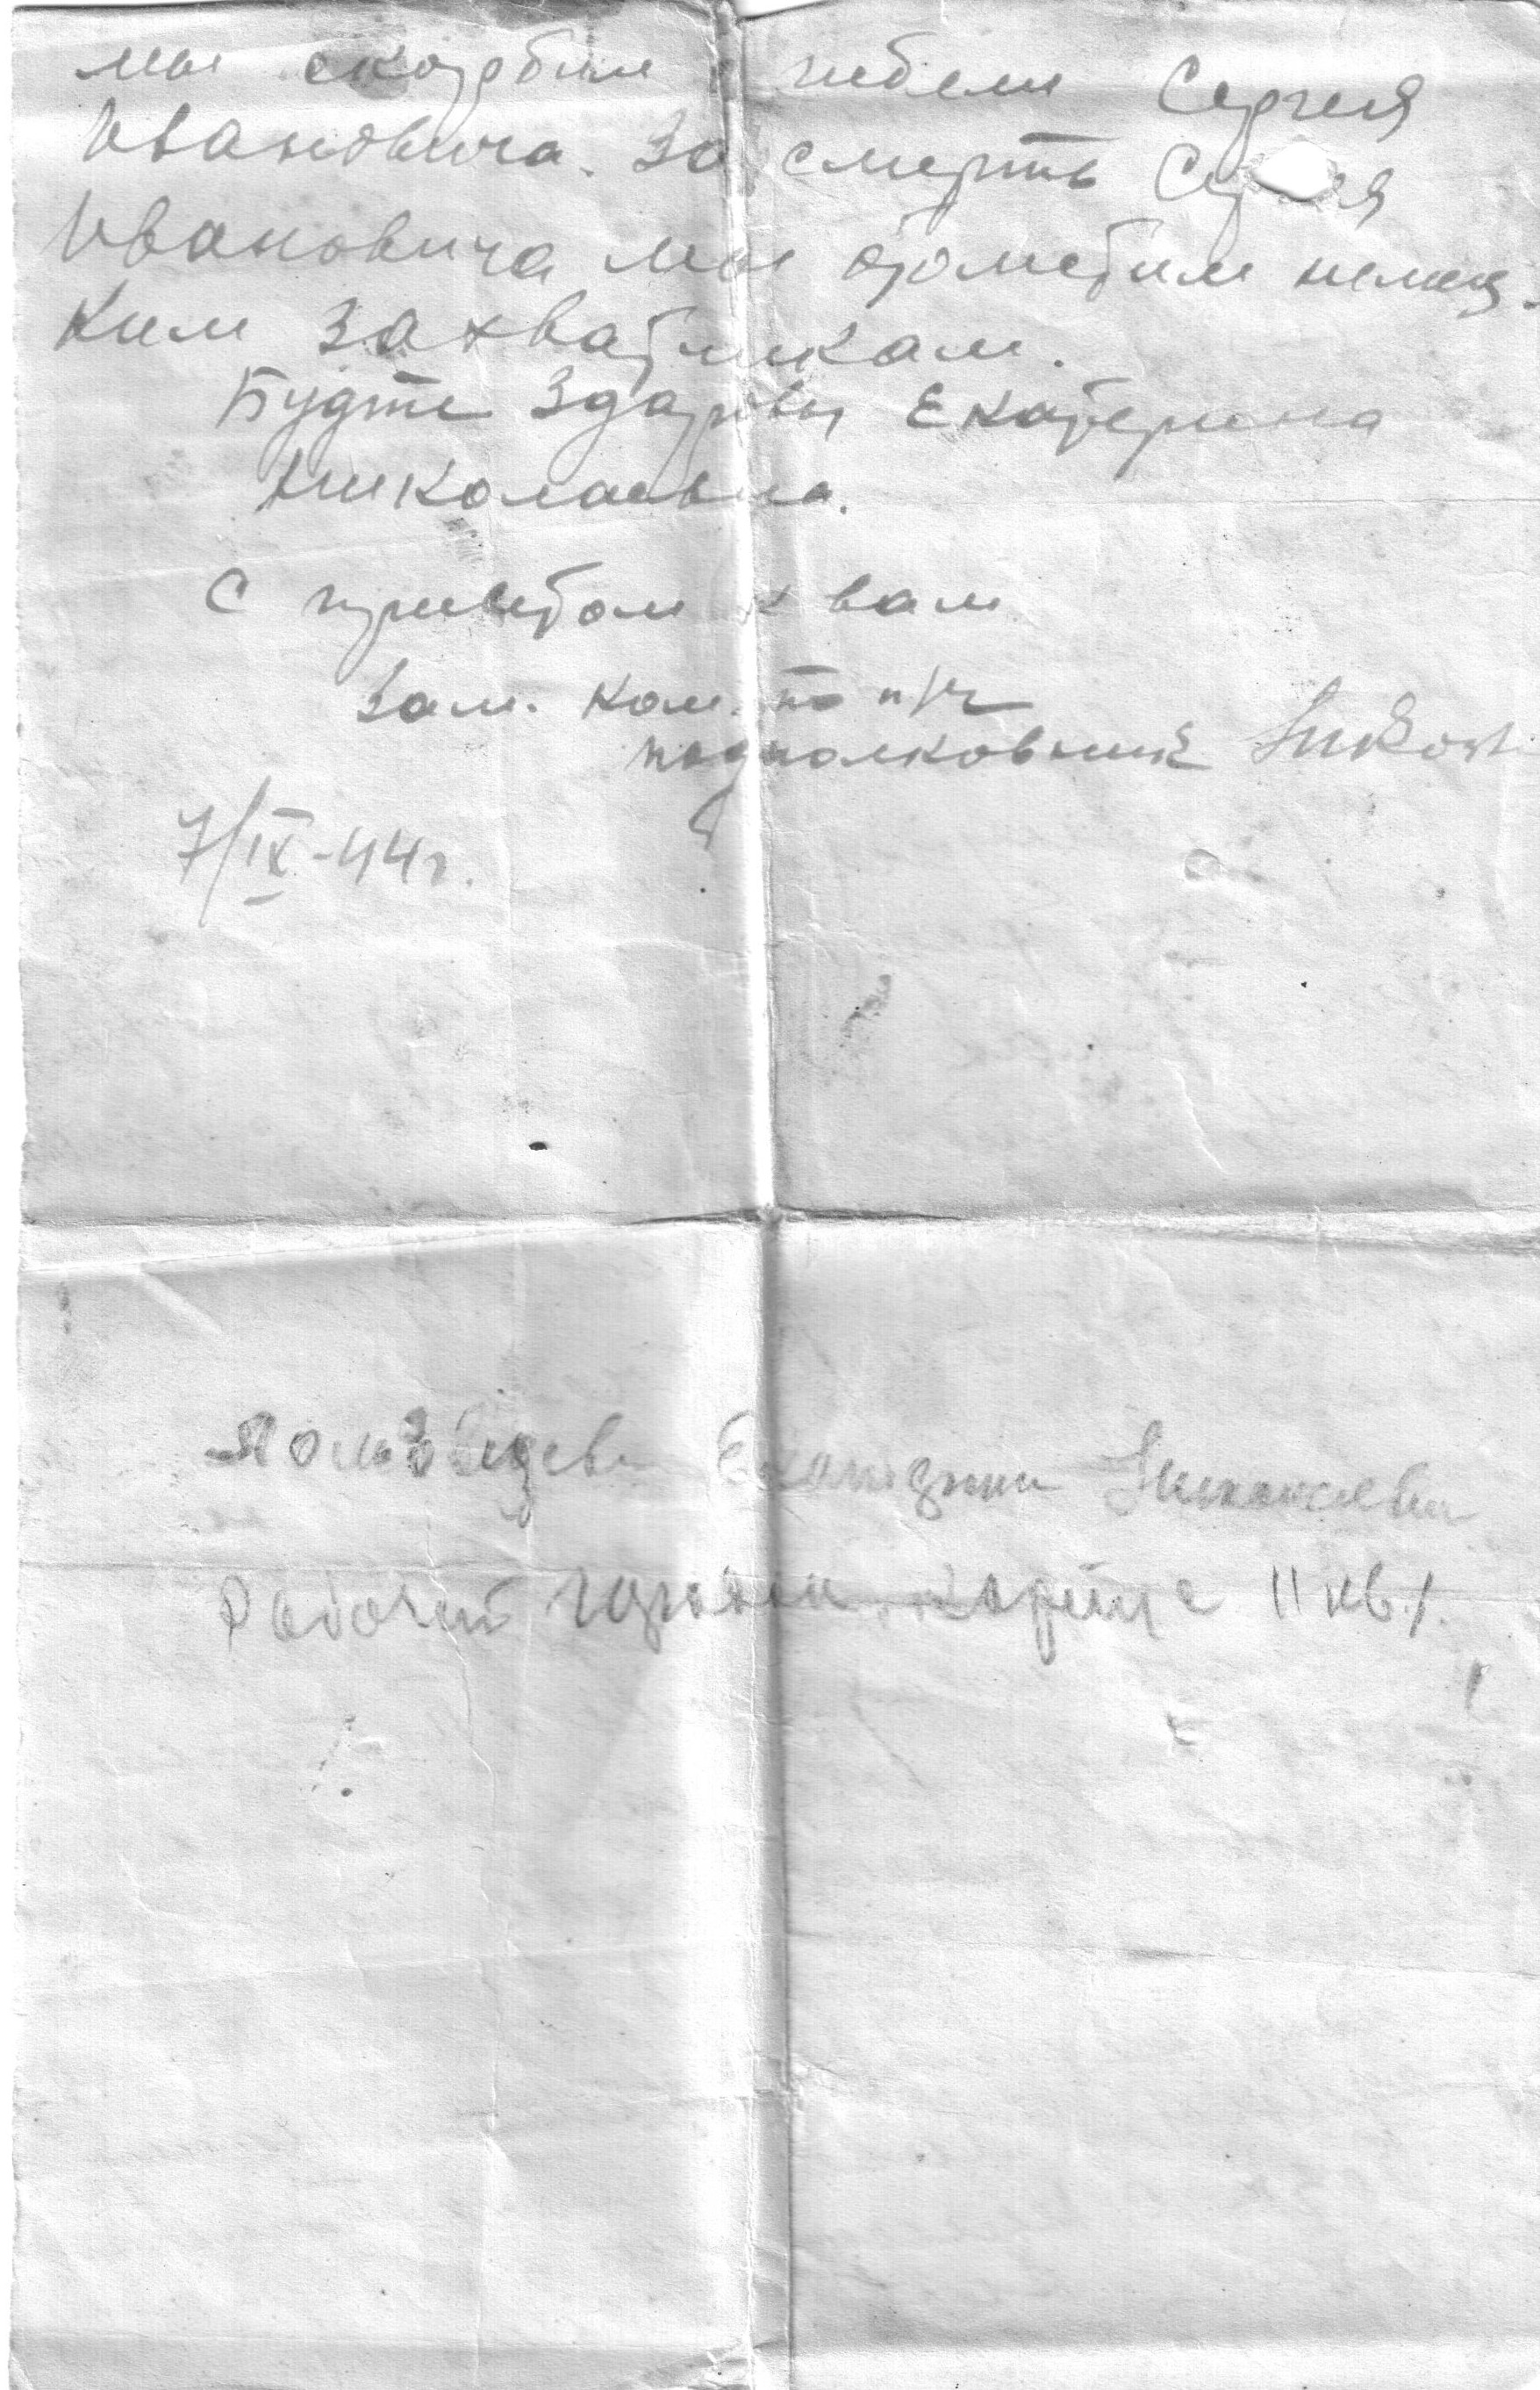 мы скорбим гибели Сергея
Ивановича. За смерть Сергея
Ивановича мы отометим немец-
ким захватчикам.
Будте здаровы Екатерина
Николаевна.
С приветом к вам
Зам. Ком. по п/ч
подполковник
7/IX-44г.
Екатерины Николаевны
Рабочий корпус 11 кв. 1.